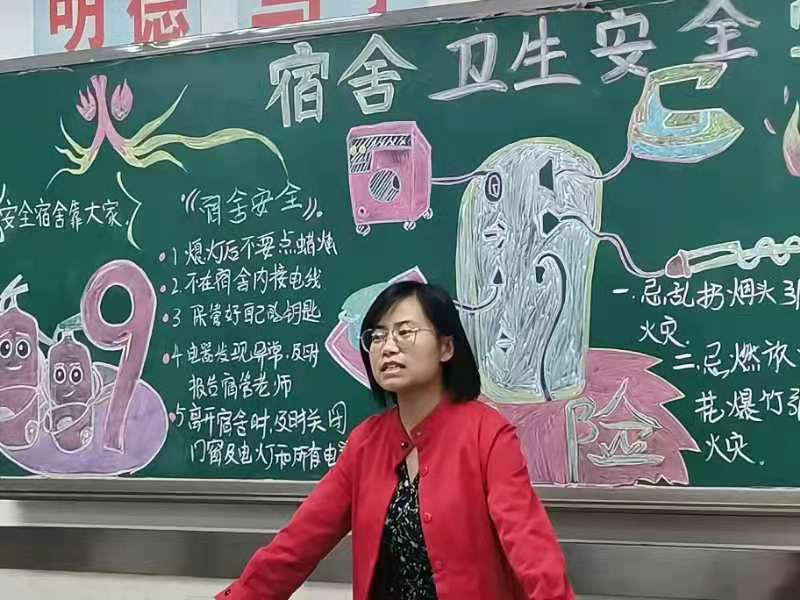 明德
宿舍卫生安全
火
安全宿舍靠大家
119
《宿舍安全》
1 熄灯后不要点蜡烛
2.不在宿舍内接电线
3 保管好自己的钥匙
4 电器发现异常,及时
报告宿管老师
5 离开宿舍时,及时关闭
门窗及电灯和所有电
一.忌乱扔烟头引
火灾.
二.忌燃放
花爆竹引
火灾.
险